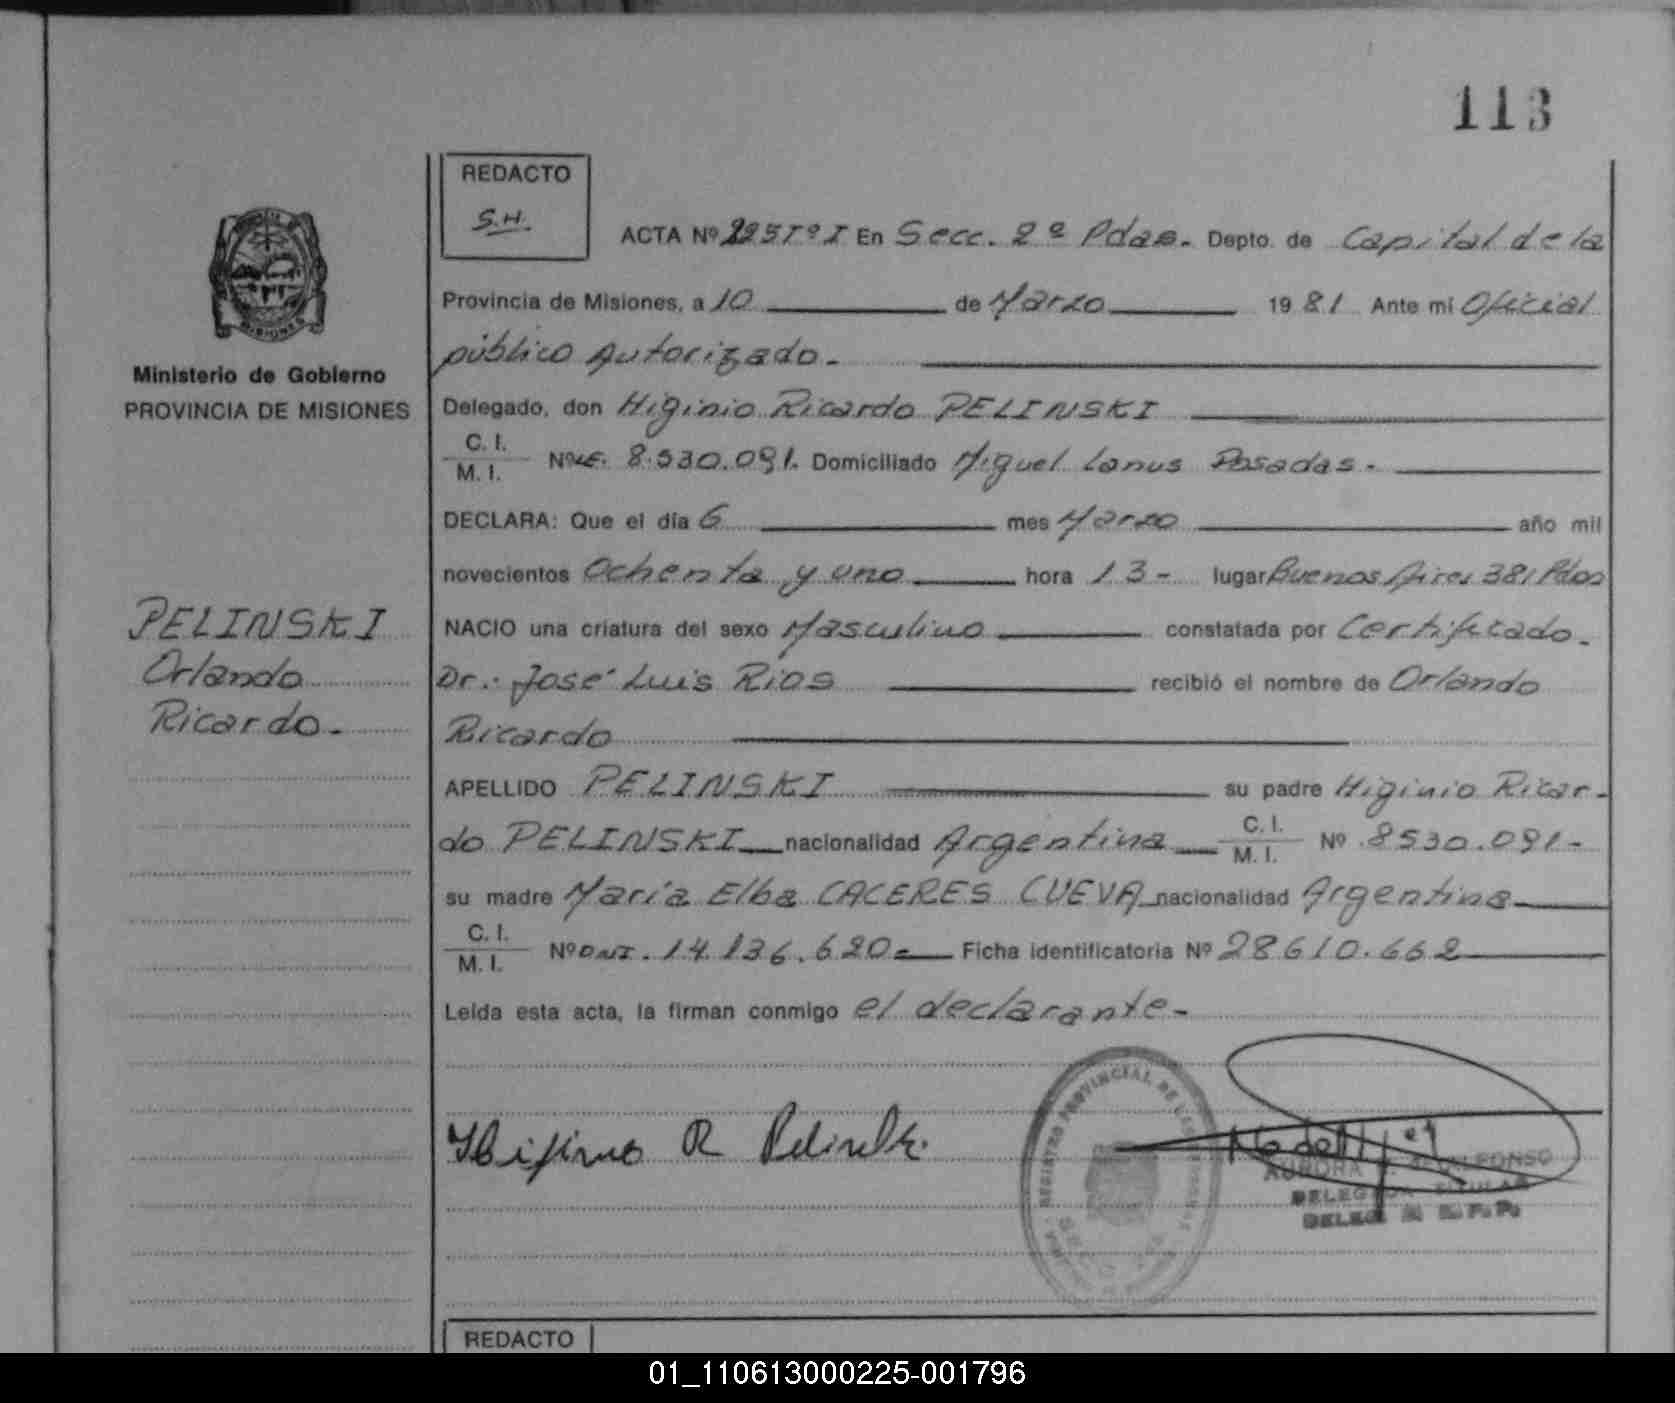 113
REDACTO
S.H.
ACTA Nº 225 Tº I En Secc. 2ª Pdas. Depto. de Capital de la
Provincia de Misiones, a 10 de Marzo 1981 Ante mi Oficial
público Autorizado.
Ministerio de Gobierno
PROVINCIA DE MISIONES
Delegado, don Higinio Ricardo PELINSKI
C. I.
M. I. Nº LE. 8.530.091. Domiciliado Miguel Lanus Posadas.
DECLARA: Que el día 6 mes Marzo año mil
novecientos Ochenta y uno hora 13- lugar Buenos Aires 381 Pdas
PELINSKI
Orlando
Ricardo.
NACIO una criatura del sexo Masculino constatada por Certificado.
Dr. José Luis Rios recibió el nombre de Orlando
Ricardo
APELLIDO PELINSKI su padre Higinio Ricar-
do PELINSKI nacionalidad Argentina C. I.
M. I. Nº 8530.091-
su madre María Elba CACERES CUEVA nacionalidad Argentina
C. I.
M. I. Nº DNI. 14.136.620- Ficha identificatoria Nº 28610.662
Leída esta acta, la firman conmigo el declarante-
Higinio R Pelinski.
REGISTRO PROVINCIAL DE LAS
AURORA
DELEGADA TITULAR
REDACTO
01_110613000225-001796